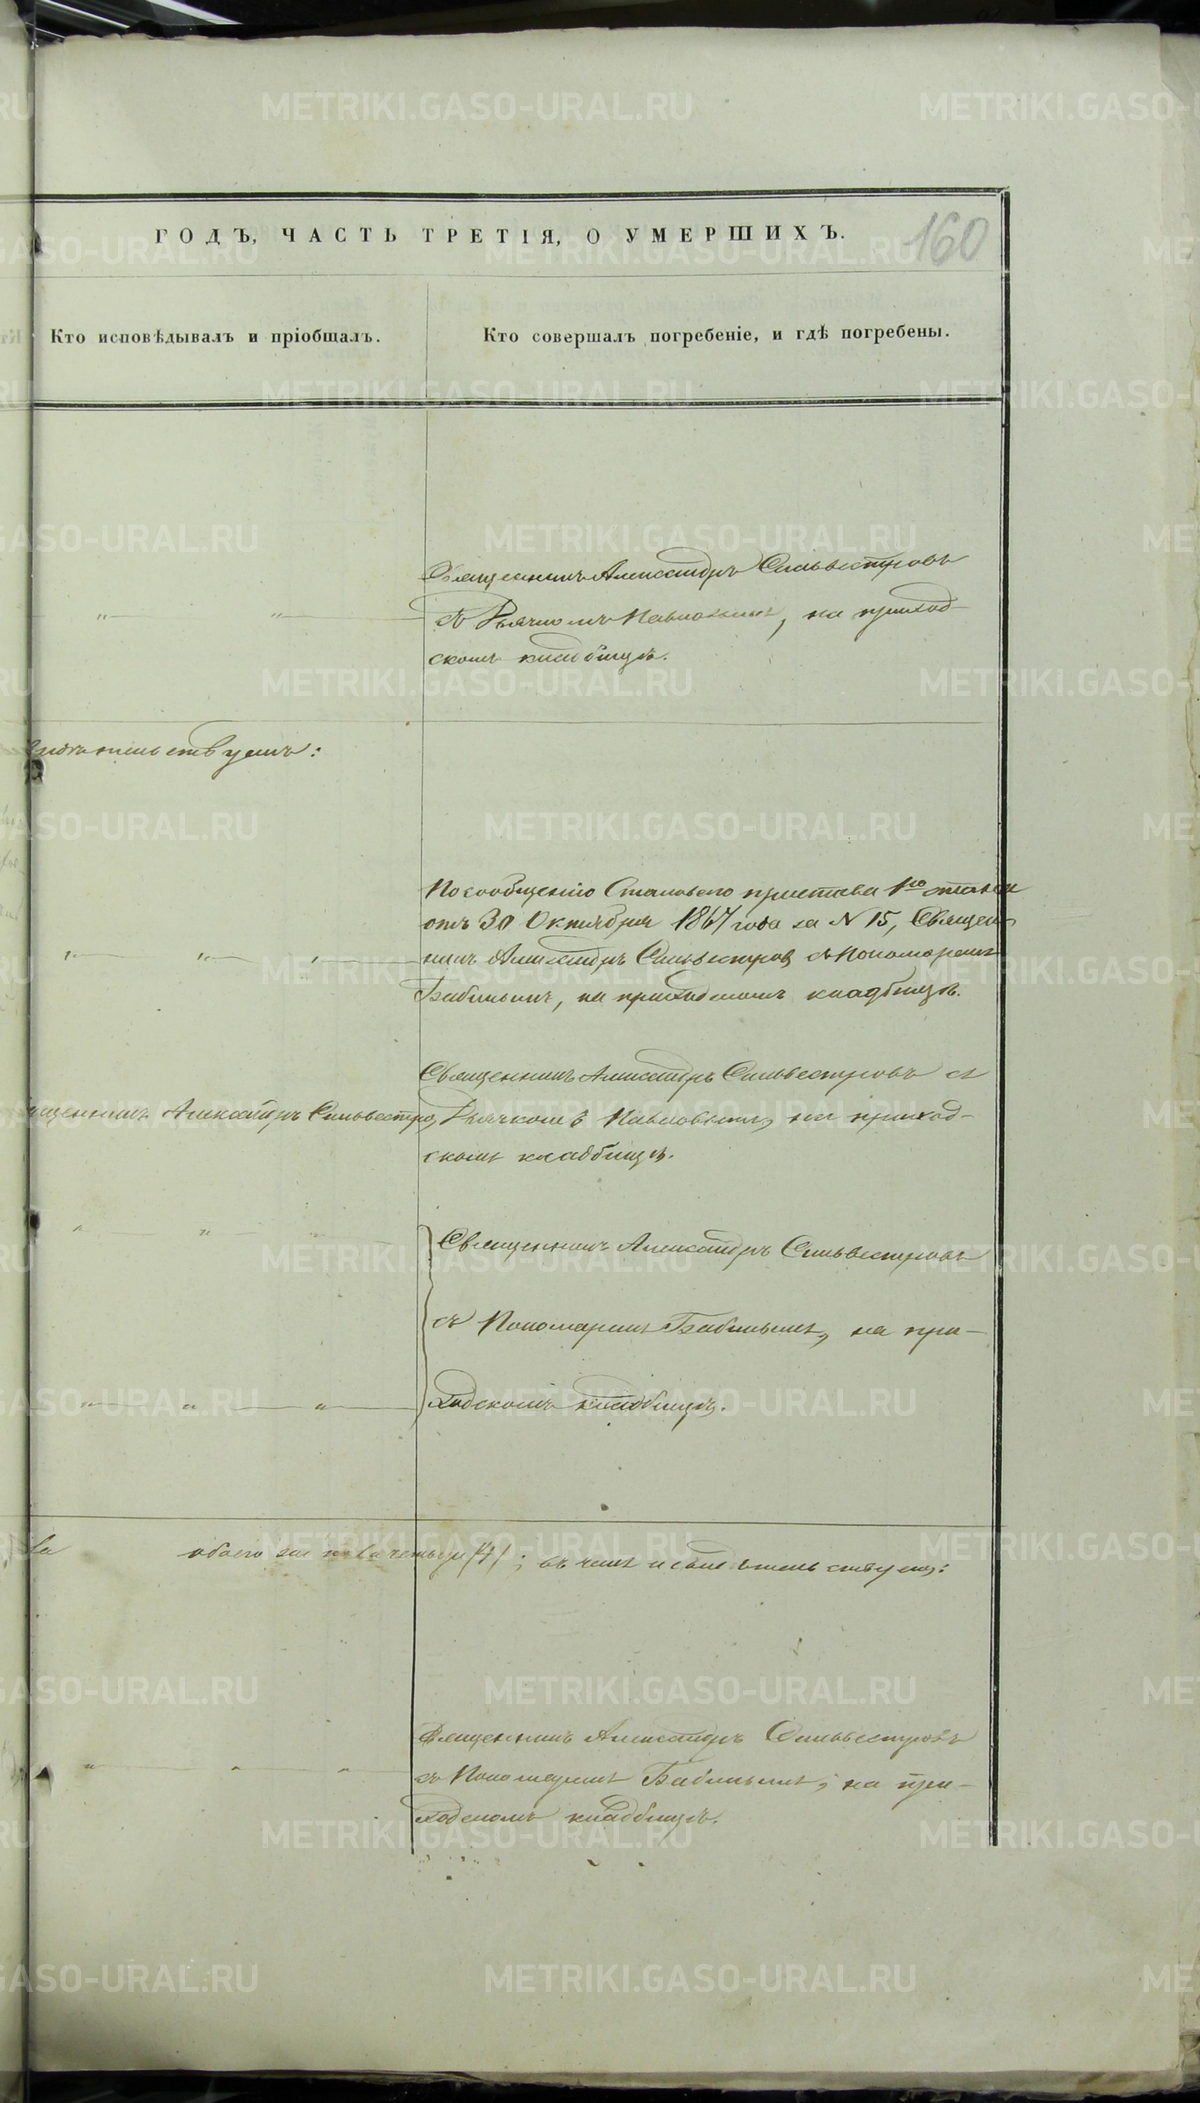 ГОДЪ, ЧАСТЬ ТРЕТІЯ, О УМЕРШИХЪ.
160
Кто исповѣдывалъ и пріобщалъ.
Кто совершалъ погребеніе, и гдѣ погребены.
Священникъ Александръ Сильвестровъ
съ Дьячкомъ Павловымъ, на приход-
скомъ кладбищѣ.
свидѣтельствуемъ:
По сообщенію Становаго пристава 1го стана
отъ 30 Октября 1867 года за N 15, Священ-
никъ Александръ Сильвестровъ съ Пономаремъ
Бабинымъ, на приходскомъ кладбищѣ.
Священникъ Александръ Сильвестровъ съ
щенникъ Александръ Сильвестров Дьячкомъ Павловымъ, на приход-
скомъ кладбищѣ.
Священникъ Александръ Сильвестровъ
съ Пономаремъ Бабинымъ, на при-
ходскомъ кладбищѣ.
ва обоего пола четыре (4); въ чемъ и свидѣтельствуемъ:
Священникъ Александръ Сильвестровъ
съ Пономаремъ Бабинымъ, на при-
ходскомъ кладбищѣ.
METRIKI.GASO-URAL.RU